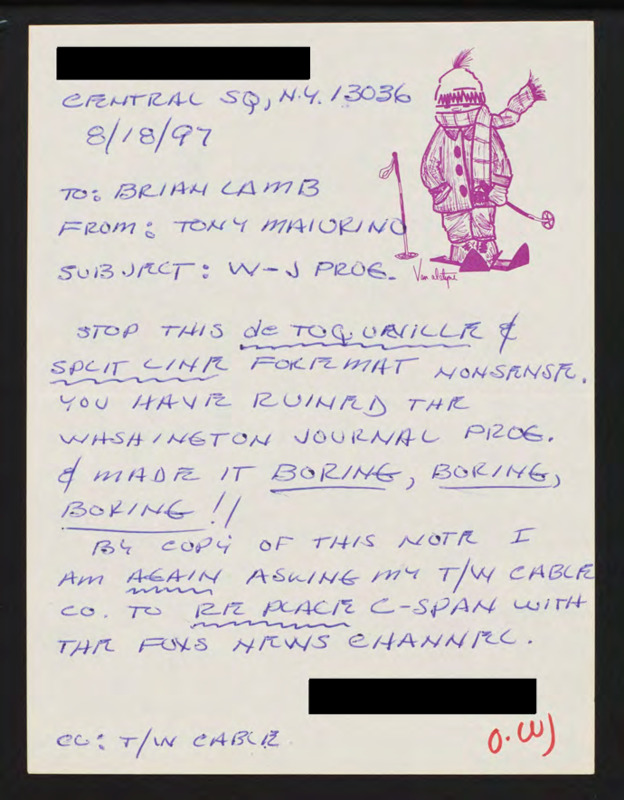 CENTRAL SQ, N.Y. 13036
8/18/97
TO: BRIAN LAMB
FROM: TONY MAIORINO
SUBJECT: W-J PROG.
Van alstyne
STOP THIS de TOQUEVILLE &
SPLIT LINE FOREMAT NONSENSE.
YOU HAVE RUINED THE
WASHINGTON JOURNAL PROG.
& MADE IT BORING, BORING,
BORING!!
BY COPY OF THIS NOTE I
AM AGAIN ASKING MY T/W CABLE
CO. TO REPLACE C-SPAN WITH
THE FOXS NEWS CHANNEL.
CC: T/W CABLE